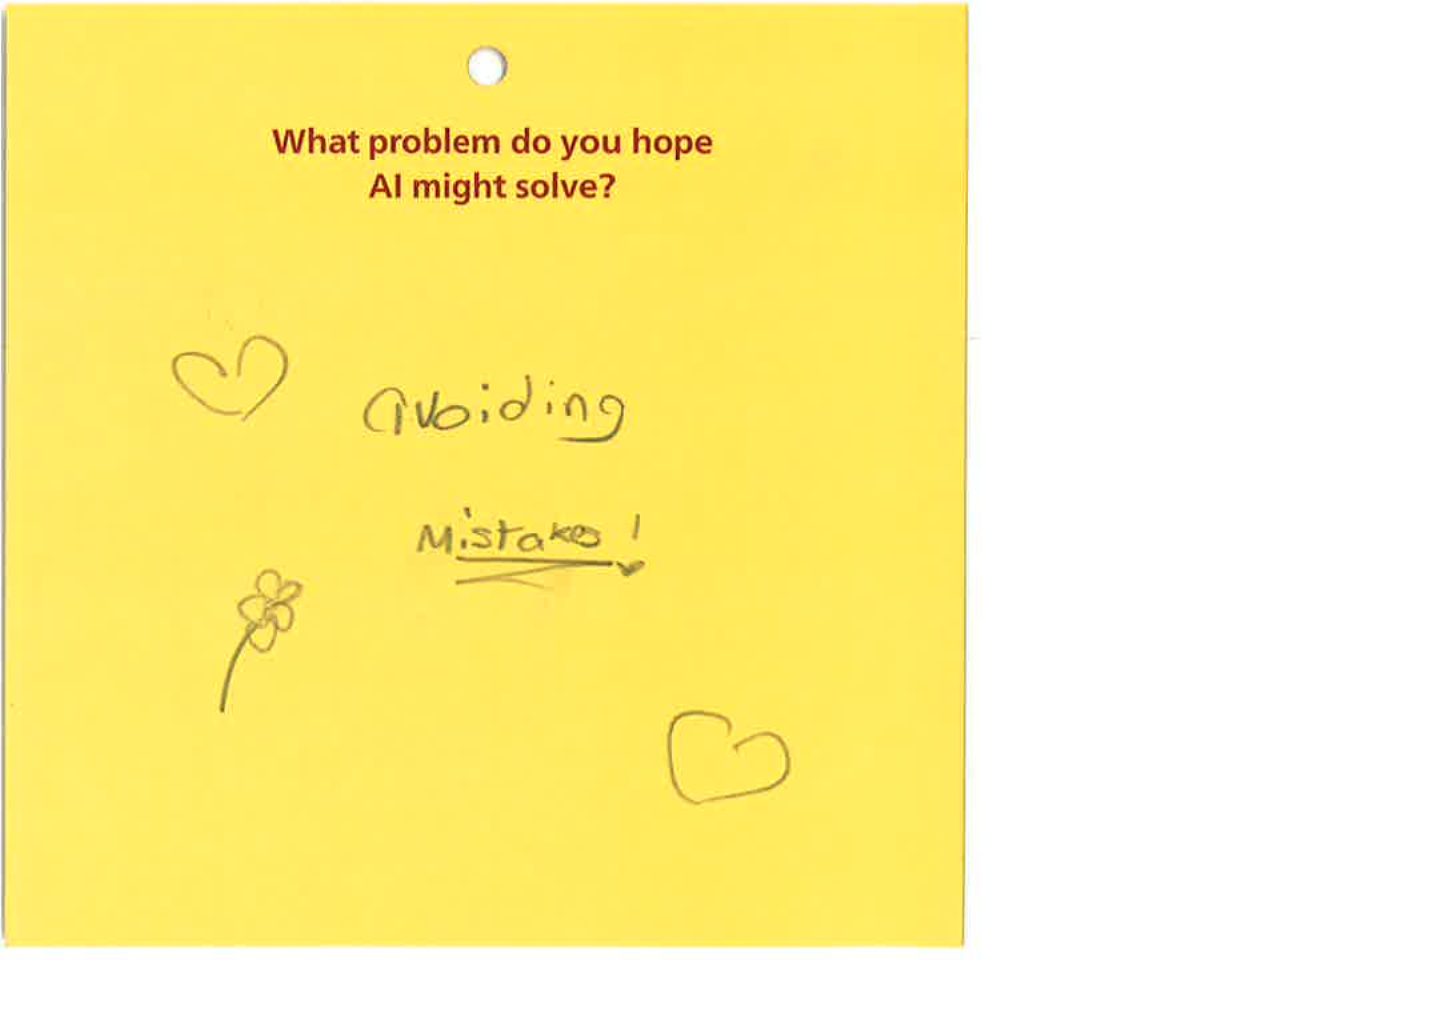 What problem do you hope
AI might solve?
avoiding
Mistakes!